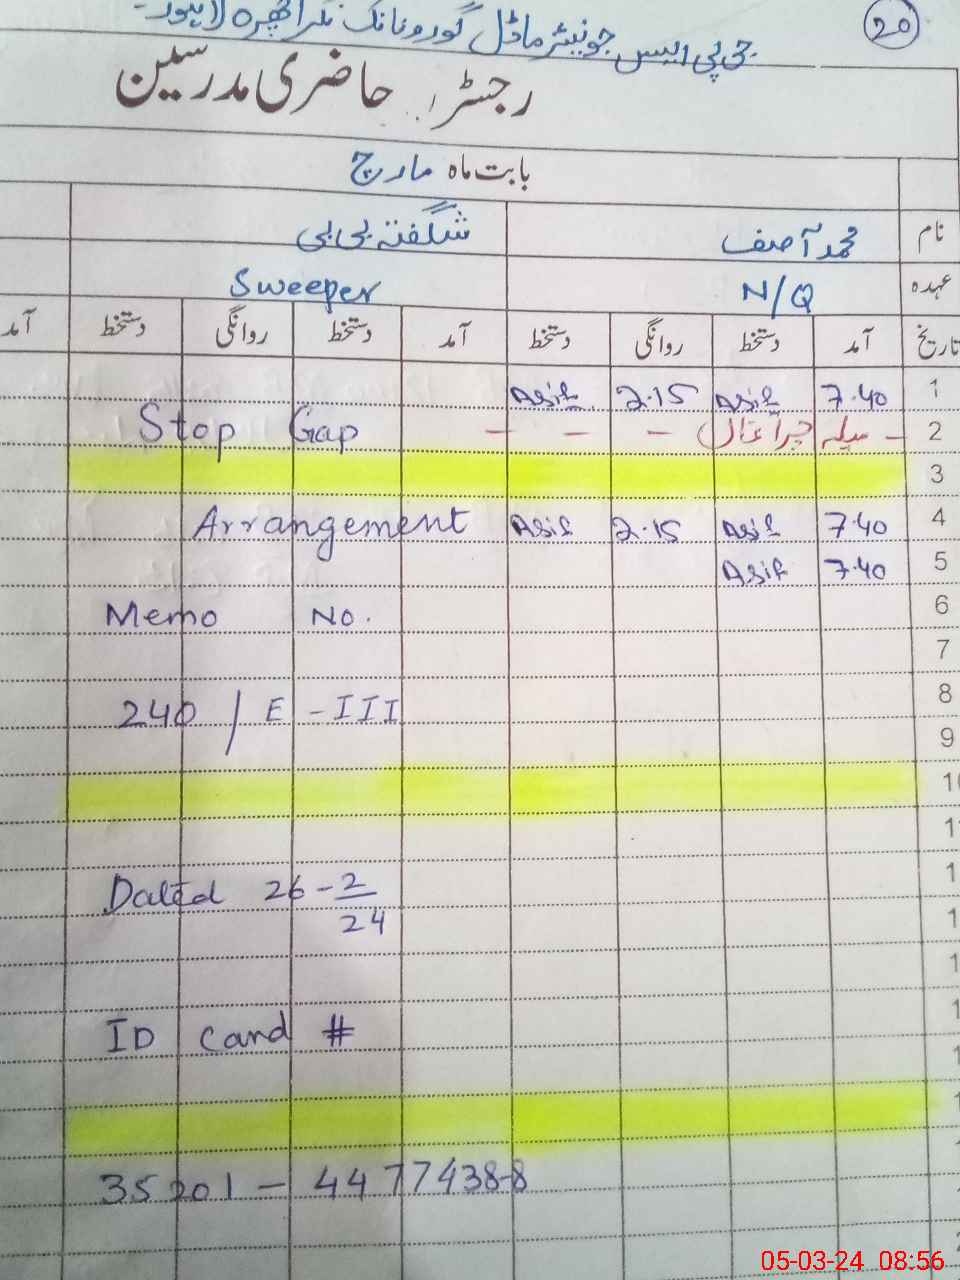 20
جی پی ایس جونیئر ماڈل گورونانک نگر اچھرہ لاہور۔
رجسٹر حاضری مدرسین
بابت ماہ مارچ
نام محمد آصف شگفتہ بی بی
عہدہ N/Q Sweeper
تاریخ آمد دستخط روانگی دستخط آمد دستخط روانگی دستخط آمد
1 7.40 Asif 2.15 Asif
2 - میلہ چراغاں - - - Stop Gap
3
4 7.40 Asif 2.15 Asif Arrangement
5 7.40 Asif
6 Memo No.
7
8 240 / E - III
9
10
Dated 26-2/24
ID Card #
35201 - 4477438-8
05-03-24 08:56